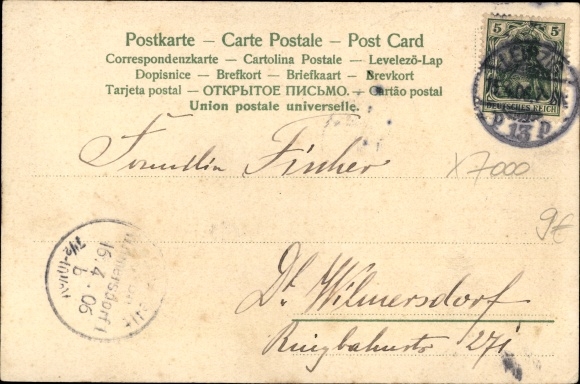 Postkarte – Carte Postale – Post Card
Correspondenzkarte – Cartolina Postale – Levelező-Lap
Dopisnice – Brefkort – Briefkaart – Brevkort
Tarjeta postal – ОТКРЫТОЕ ПИСЬМО. – Cartão postal
Union postale universelle.
5 5
DEUTSCHES REICH
p 13 p
Familie Fischer
X7000
9€
15.4.06
Dt. Wilmersdorf
Ringbahnstr 271